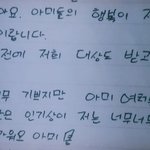 아요. 아미들의 행복이 저
이랍니다.
전에 저희 대상도 받고
무 기쁘지만 아미 여러
같은 인기상이 저는 너무너무
가워요 아미